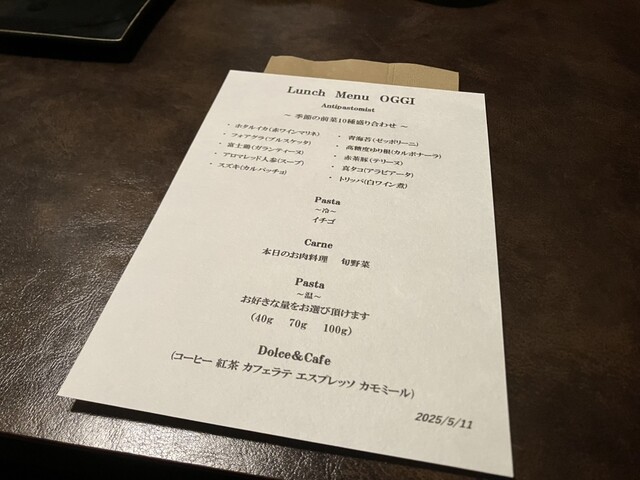 Lunch Menu OGGI
Antipastomist
～ 季節の前菜10種盛り合わせ ～
・ ホタルイカ(赤ワインマリネ)
・ フォアグラ(ブルスケッタ)
・ 富士鶏(ガランティーヌ)
・ アロマレッド人参(スープ)
・ スズキ(カルパッチョ)
・ 青海苔(ゼッポリーニ)
・ 高糖度ゆり根(カルボナーラ)
・ 赤茶豚(テリーヌ)
・ 真タコ(アラビアータ)
・ トリッパ(白ワイン煮)
Pasta
～冷～
イチゴ
Carne
本日のお肉料理 旬野菜
Pasta
～温～
お好きな量をお選び頂けます
(40g 70g 100g)
Dolce&Cafe
(コーヒー 紅茶 カフェラテ エスプレッソ カモミール)
2025/5/11